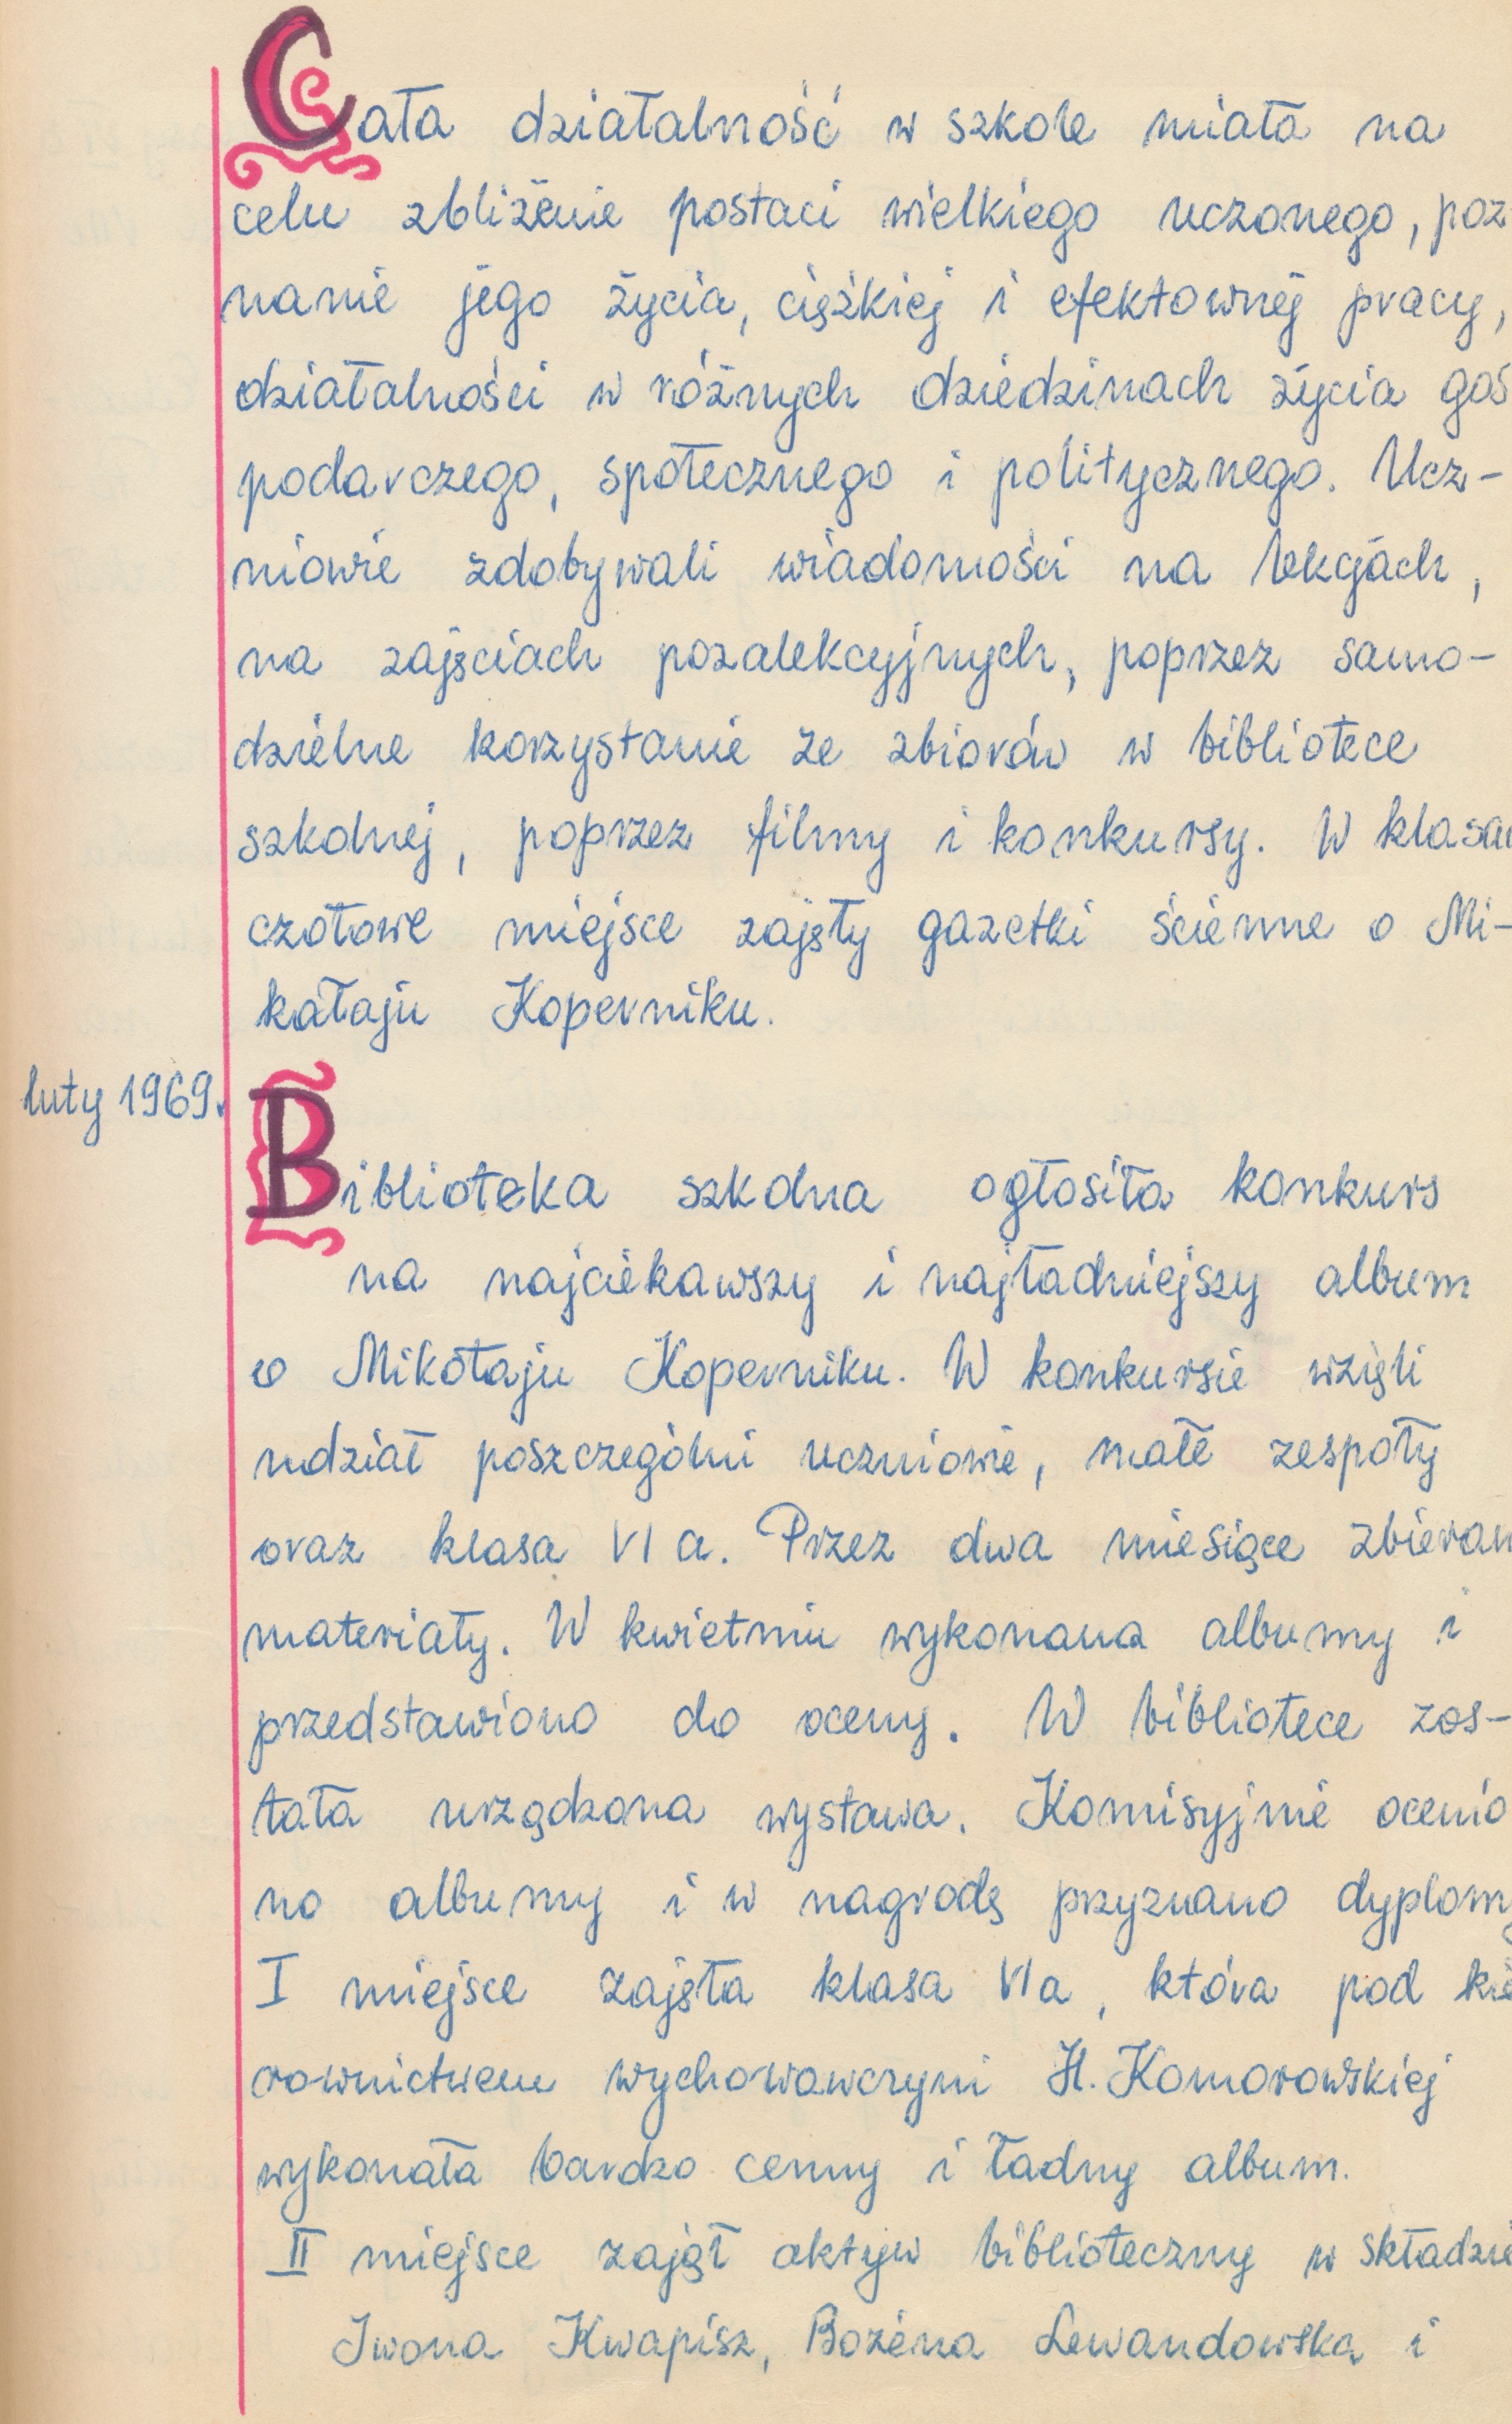 Cała działalność w szkole miała na
celu zbliżenie postaci wielkiego uczonego, poz
nanie jego życia, ciężkiej i efektownej pracy,
działalności w różnych dziedzinach życia gos
podarczego, społecznego i politycznego. Ucz-
niowie zdobywali wiadomości na lekcjach,
na zajęciach pozalekcyjnych, poprzez samo-
dzielne korzystanie ze zbiorów w bibliotece
szkolnej, poprzez filmy i konkursy. W klasac
czołowe miejsce zajęły gazetki ścienne o Mi-
kałaju Koperniku.
luty 1969.
Biblioteka szkolna ogłosiła konkurs
na najciekawszy i najładniejszy album
o Mikołaju Koperniku. W konkursie wzięli
udział poszczególni uczniowie, małe zespoły
oraz klasa VI a. Przez dwa miesiące zbieran
materiały. W kwietniu wykonana albumy i
przedstawiono do oceny. W bibliotece zos-
tała urządzona wystawa. Komisyjnie ocenio
no albumy i w nagrodę przyznano dyplomy
I miejsce zajęła klasa VIa, która pod kie
rownictwem wychowawczyni H. Komorowskiej
wykonała bardzo cenny i ładny album.
II miejsce zajął aktyw biblioteczny w składzie
Iwona Kwapisz, Bożena Lewandowska i